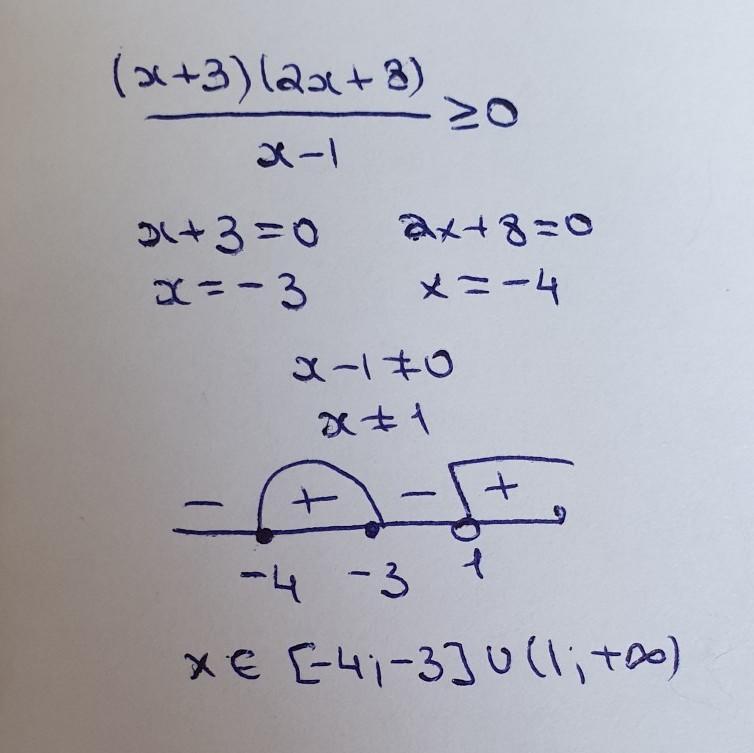 (x+3)(2x+8)
≥0
x-1
x+3=0 2x+8=0
x=-3 x=-4
x-1≠0
x≠1
- + - +
-4 -3 1
x∈[-4;-3]∪(1;+∞)